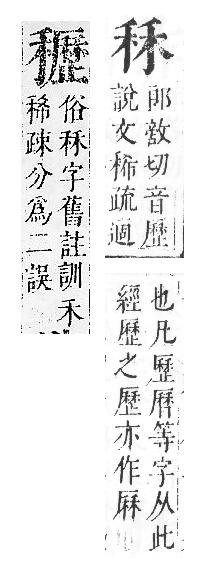 秝
郎切音歷
說文稀疏適
也凡歷曆等字从此
經歷之歷亦作厤
俗秝字舊註訓禾
稀疎分爲二誤